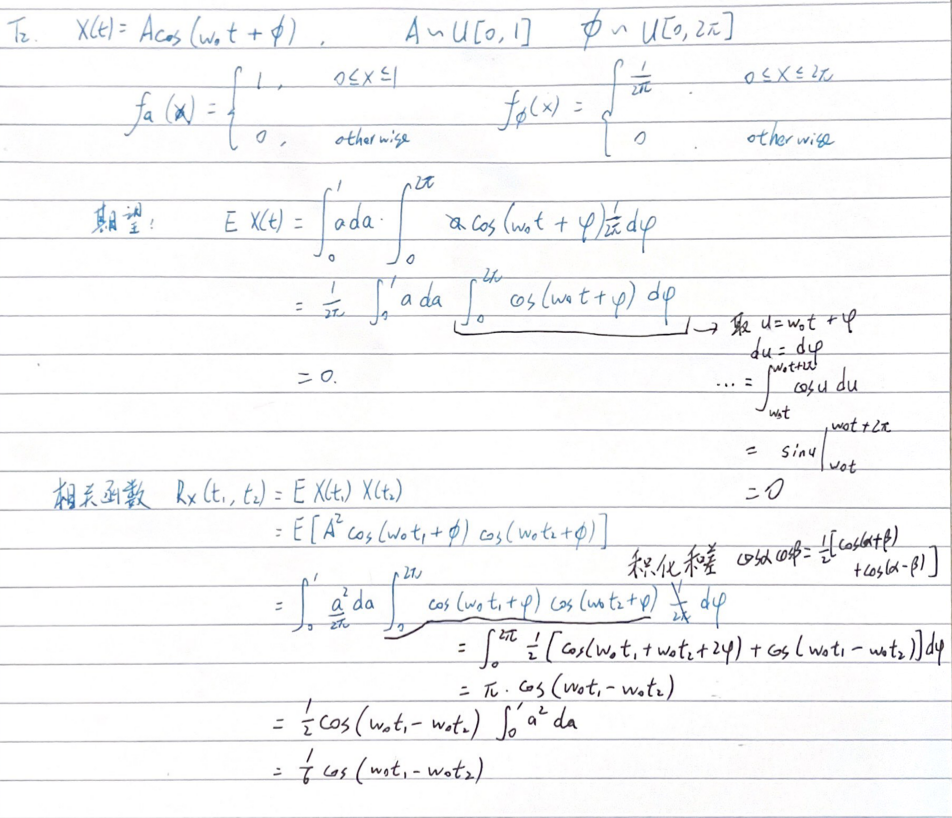 T2. X(t) = A cos(w₀t + ϕ), A ~ U[0, 1] ϕ ~ U[0, 2π]
fa(x) = { 1, 0≤x≤1 fϕ(x) = { 1/2π, 0≤x≤2π
0, otherwise 0 otherwise
期望: E X(t) = ∫₀¹ a da · ∫₀^{2π} cos(w₀t + φ) 1/2π dφ
= 1/2π ∫₀¹ a da ∫₀^{2π} cos(w₀t + φ) dφ
→ 取 u = w₀t + φ
du = dφ
= 0.
... = ∫_{w₀t}^{w₀t+2π} cos u du
= sin u |_{w₀t}^{w₀t+2π}
= 0
相关函数 Rx(t₁, t₂) = E X(t₁) X(t₂)
= E[A² cos(w₀t₁ + ϕ) cos(w₀t₂ + ϕ)]
积化和差 cosα cosβ = 1/2[cos(α+β)
+ cos(α-β)]
= ∫₀¹ a²/2π da ∫₀^{2π} cos(w₀t₁ + φ) cos(w₀t₂ + φ) dφ
= ∫₀^{2π} 1/2 [cos(w₀t₁ + w₀t₂ + 2φ) + cos(w₀t₁ - w₀t₂)] dφ
= π · cos(w₀t₁ - w₀t₂)
= 1/2 cos(w₀t₁ - w₀t₂) ∫₀¹ a² da
= 1/6 cos(w₀t₁ - w₀t₂)